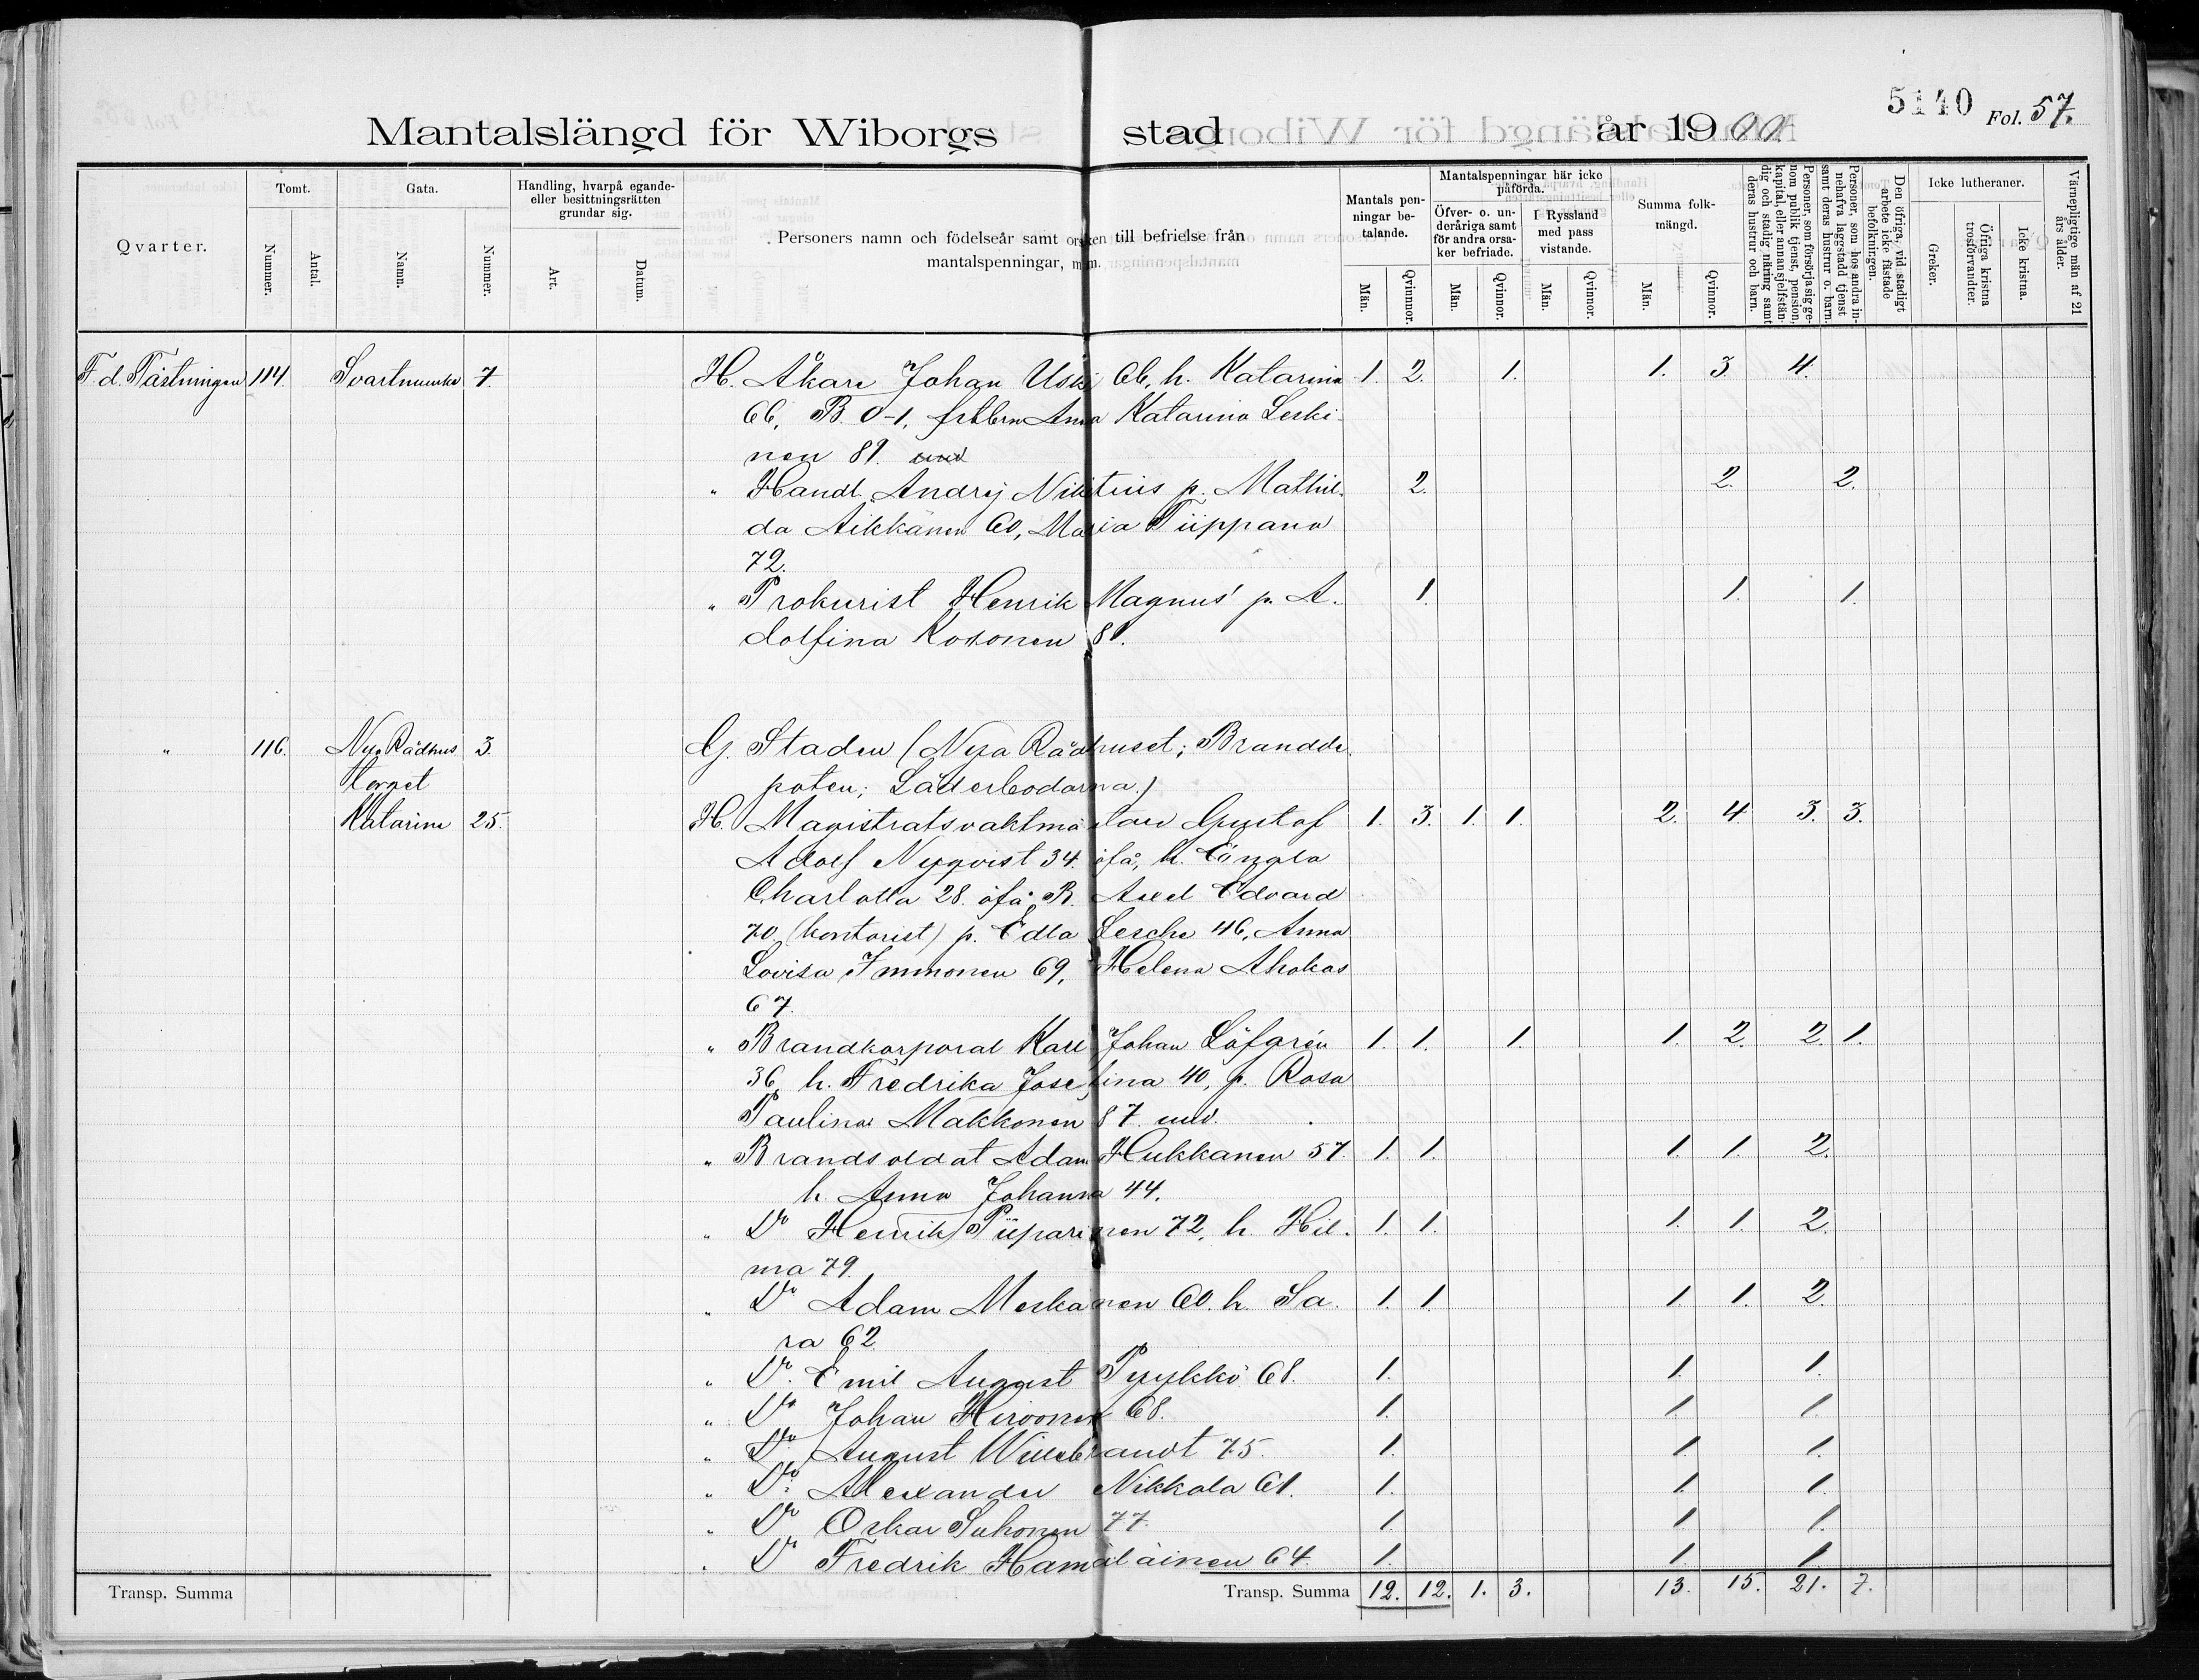 5140 Fol. 57.
Mantalslängd för Wiborgs stad år 1900.
Qvarter.
Tomt.
Nummer.
Antal.
Gata.
Namn.
Nummer.
Handling, hvarpå egande- eller besittningsrätten grundar sig.
Art.
Datum.
Personers namn och födelseår samt orsaken till befrielse från
mantalspenningar, m. m.
Mantals pen- ningar be- talande.
Män.
Qvinnor.
Mantalspenningar här icke påförda.
Öfver- o. un- deråriga samt för andra orsa- ker befriade.
Män.
Qvinnor.
I Ryssland med pass vistande.
Män.
Qvinnor.
Summa folk- mängd.
Män.
Qvinnor.
Personer, som försörja sig ge- nom publik tjenst, pension, kapital, eller annan sjelfstän- dig och stadig näring samt deras hustrur och barn.
Personer, som hos andra in- nehafva laggstadd tjenst samt deras hustrur o. barn.
Den öfriga, vid stadigt arbete icke fästade befolkningen.
Icke lutheraner.
Greker.
Öfriga kristna trosförvandter.
Icke kristna.
Värnepligtige män af 21 års ålder.
F. d. Fästningen 114. Svartmunke 7. H. Åkare Johan Uski 66, h. Katarina 1. 2. 1. 1. 3. 4.
66, B. 0-1, Anna Katarina Leski-
nen 89.
" Handl. Andrej Nikitins p. Mathil- 2. 2. 2.
da Aikkänen 60, Maria Tiippana
72.
" Prokurist Henrik Magnus' p. A- 1. 1. 1.
dolfina Kosonen 81.
" 116. Nya Rådhus 3. G. Staden (Nya Rådhuset; Brandde-
torget poten; Läderbodarna.)
Katarine 25. H. Magistratsvaktmästare Gustaf 1. 3. 1. 1. 2. 4. 3. 3.
Adolf Nyqvist 34. öfå, h. Engla
Charlotta 28. öfå, B. Axel Edvard
70 (kontorist) p. Edla Lesche 46, Anna
Lovisa Immonen 69, Helena Ahokas
67.
" Brandkorporal Karl Johan Löfgrén 1. 1. 1. 1. 2. 2. 1.
36, h. Fredrika Josefina 40, p. Rosa
Paulina Makkonen 87. und.
" Brandsoldat Adam Hukkanen 57. 1. 1. 1. 1. 2.
h. Anna Johanna 44.
" Do Henrik Piiparinen 72, h. Hil- 1. 1. 1. 1. 2.
ma 79.
" Do Adam Meskanen 60. h. Sa- 1. 1. 1. 1. 2.
ra 62
" Do Emil August Pyykkö 68. 1. 1. 1.
" Do Johan Hirvonen 68. 1. 1. 1.
" Do August Willebrandt 75. 1. 1. 1.
" Do Alexander Nikkola 61. 1. 1. 1.
" Do Oskar Suhonen 77. 1. 1. 1.
" Do Fredrik Hämäläinen 64. 1. 1. 1.
Transp. Summa Transp. Summa 12. 12. 1. 3. 13. 15. 21. 7.